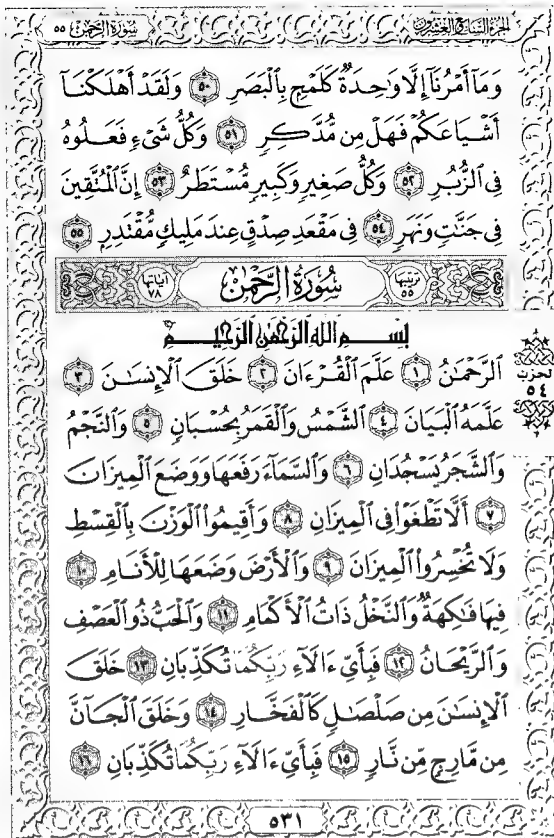 الجزء السابع والعشرون سورة الرحمن ٥٥
وَمَآ أَمْرُنَآ إِلَّا وَٰحِدَةٌ كَلَمْحٍۭ بِٱلْبَصَرِ ٥٠ وَلَقَدْ أَهْلَكْنَآ
أَشْيَاعَكُمْ فَهَلْ مِن مُّدَّكِرٍ ٥١ وَكُلُّ شَىْءٍ فَعَلُوهُ
فِى ٱلزُّبُرِ ٥٢ وَكُلُّ صَغِيرٍ وَكَبِيرٍ مُّسْتَطَرٌ ٥٣ إِنَّ ٱلْمُتَّقِينَ
فِى جَنَّٰتٍ وَنَهَرٍ ٥٤ فِى مَقْعَدِ صِدْقٍ عِندَ مَلِيكٍ مُّقْتَدِرٍۭ ٥٥
ترتيبها ٥٥ سُورَةُ الرَّحْمٰن آياتها ٧٨
بسم الله الرحمن الرحيم
ٱلرَّحْمَٰنُ ١ عَلَّمَ ٱلْقُرْءَانَ ٢ خَلَقَ ٱلْإِنسَٰنَ ٣
عَلَّمَهُ ٱلْبَيَانَ ٤ ٱلشَّمْسُ وَٱلْقَمَرُ بِحُسْبَانٍ ٥ وَٱلنَّجْمُ
وَٱلشَّجَرُ يَسْجُدَانِ ٦ وَٱلسَّمَآءَ رَفَعَهَا وَوَضَعَ ٱلْمِيزَانَ
٧ أَلَّا تَطْغَوْا۟ فِى ٱلْمِيزَانِ ٨ وَأَقِيمُوا۟ ٱلْوَزْنَ بِٱلْقِسْطِ
وَلَا تُخْسِرُوا۟ ٱلْمِيزَانَ ٩ وَٱلْأَرْضَ وَضَعَهَا لِلْأَنَامِ ١٠
فِيهَا فَٰكِهَةٌ وَٱلنَّخْلُ ذَاتُ ٱلْأَكْمَامِ ١١ وَٱلْحَبُّ ذُو ٱلْعَصْفِ
وَٱلرَّيْحَانُ ١٢ فَبِأَىِّ ءَالَآءِ رَبِّكُمَا تُكَذِّبَانِ ١٣ خَلَقَ
ٱلْإِنسَٰنَ مِن صَلْصَٰلٍ كَٱلْفَخَّارِ ١٤ وَخَلَقَ ٱلْجَآنَّ
مِن مَّارِجٍ مِّن نَّارٍ ١٥ فَبِأَىِّ ءَالَآءِ رَبِّكُمَا تُكَذِّبَانِ ١٦
الحزب
٥٤
٥٣١